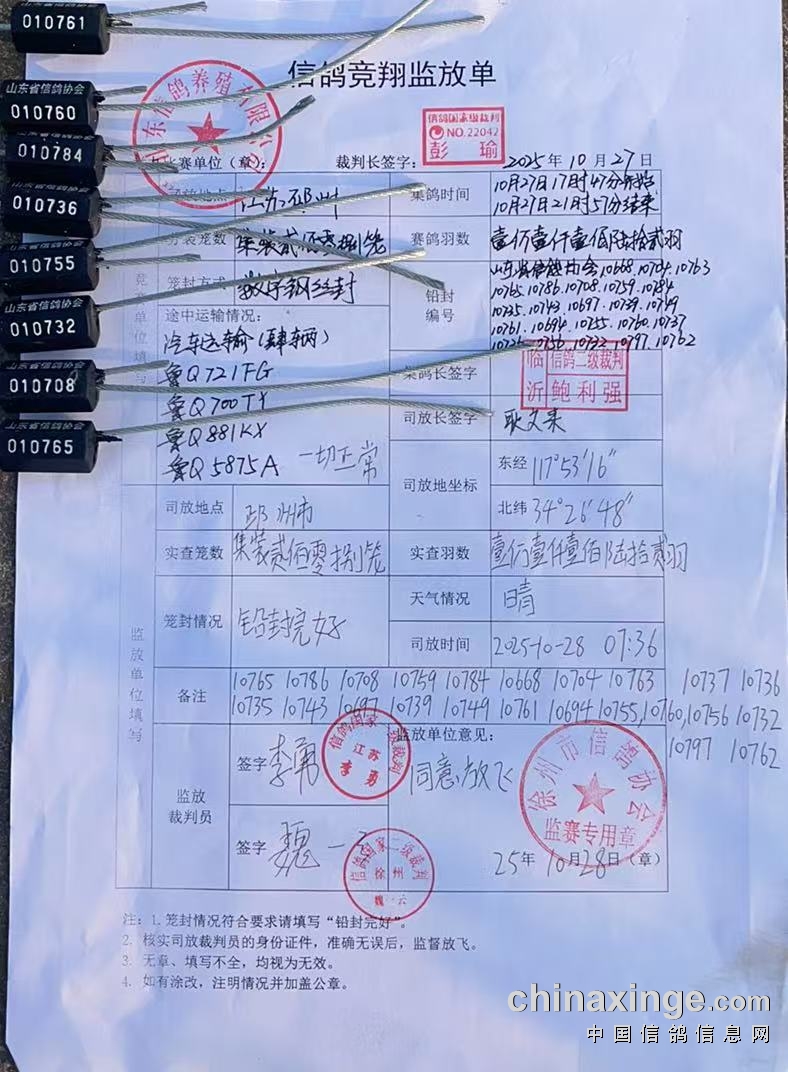 010761
山东省信鸽协会
010760
010784
010736
010755
山东省信鸽协会
010732
010708
010765
信鸽竞翔监放单
东信鸽养殖有限公司
信鸽国家级裁判
NO.22042
彭瑜
比赛单位（章）：
裁判长签字：
2025年10月27日
江苏邳州
集鸽时间
10月27日17时47分开始
10月27日21时57分结束
分装笼数
集装贰佰零捌笼
赛鸽羽数
壹仟壹佰陆拾贰羽
笼封方式
数字钢丝封
铅封编号
山东省信鸽协会10668.10704.10763
10765.10786.10708.10759.10784
10735.10743.10697.10739.10749
10761.10694.10755.10760.10737
10756.10732.10797.10762
途中运输情况：
汽车运输（肆车两）
鲁Q721FG
鲁Q700TY
鲁Q881KX
鲁Q5875A 一切正常
集鸽长签字
临沂
信鸽二级裁判
鲍利强
司放长签字
司放地坐标
东经 117°53′16″
北纬 34°26′48″
司放地点
邳州市
实查笼数
集装贰佰零捌笼
实查羽数
壹仟壹佰陆拾贰羽
笼封情况
铅封完好
天气情况
晴
司放时间
2025-10-28 07:36
监放单位填写
备注
10765 10786 10708 10759 10784 10668 10704 10763 10737 10736
10735 10743 10697 10739 10749 10761 10694 10755,10760,10756 10732
10797 10762
监放裁判员
签字 李勇
信鸽国家级裁判
江苏
李勇
签字 魏一云
信鸽国家二级裁判
徐州
魏一云
监放单位意见：
同意放飞
徐州市信鸽协会
监赛专用章
25年10月28日（章）
注：1. 笼封情况符合要求请填写“铅封完好”。
2. 核实司放裁判员的身份证件，准确无误后，监督放飞。
3. 无章、填写不全，均视为无效。
4. 如有涂改，注明情况并加盖公章。
chinaxinge.com
中国信鸽信息网